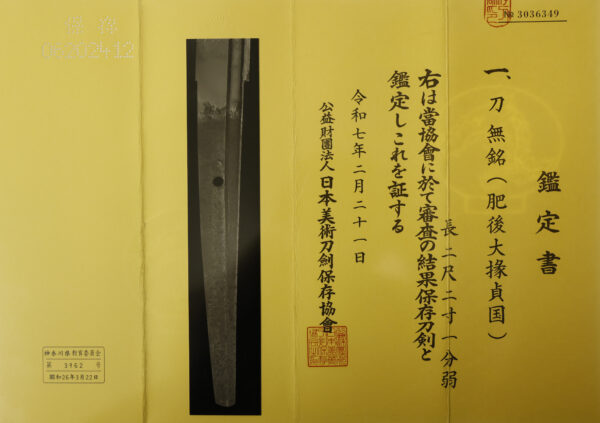 № 3036349
鑑定書
一、刀 無銘(肥後大掾貞国)
長 二尺二寸一分弱
右は當協會に於て審査の結果保存刀剣と
鑑定しこれを証する
令和七年二月二十一日
公益財團法人 日本美術刀劍保存協會
神奈川県教育委員会
第 3962 号
昭和26年3月22日